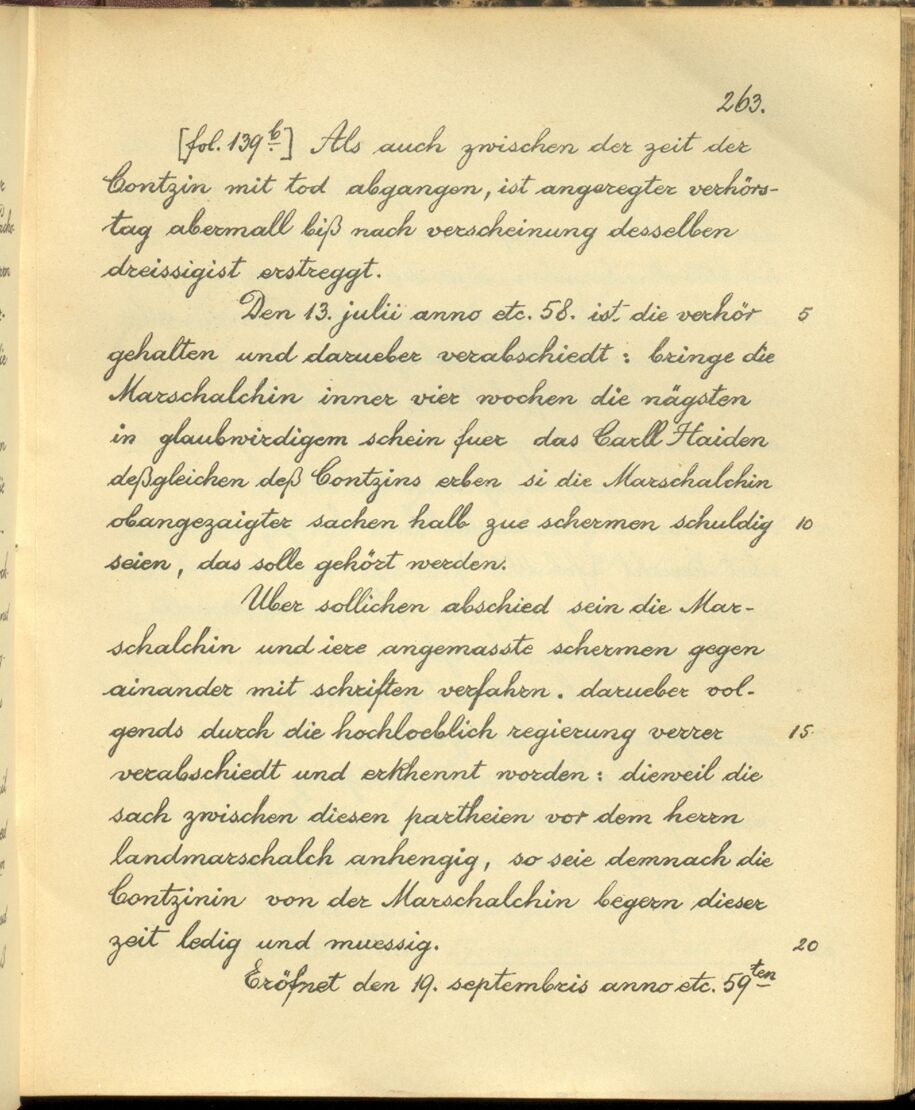 263.
[fol. 139b] Als auch zwischen der zeit der
Contzin mit tod abgangen, ist angeregter verhörs-
tag abermall biß nach verscheinung desselben
dreissigist erstreggt.
Den 13. julii anno etc. 58. ist die verhör 5
gehalten und darueber verabschiedt: bringe die
Marschalchin inner vier wochen die nägsten
in glaubwirdigem schein fuer das Carll Haiden
deßgleichen deß Contzins erben si die Marschalchin
obangezaigter sachen halb zue schermen schuldig 10
seien, das solle gehört werden.
Uber sollichen abschied sein die Mar-
schalchin und iere angemasste schermen gegen
ainander mit schriften verfahrn. darueber vol-
gends durch die hochloeblich regierung verrer 15
verabschiedt und erkhennt worden: dieweil die
sach zwischen diesen partheien vor dem herrn
landmarschalch anhengig, so seie demnach die
Contzinin von der Marschalchin begern dieser
zeit ledig und muessig. 20
Eröfnet den 19. septembris anno etc. 59ten